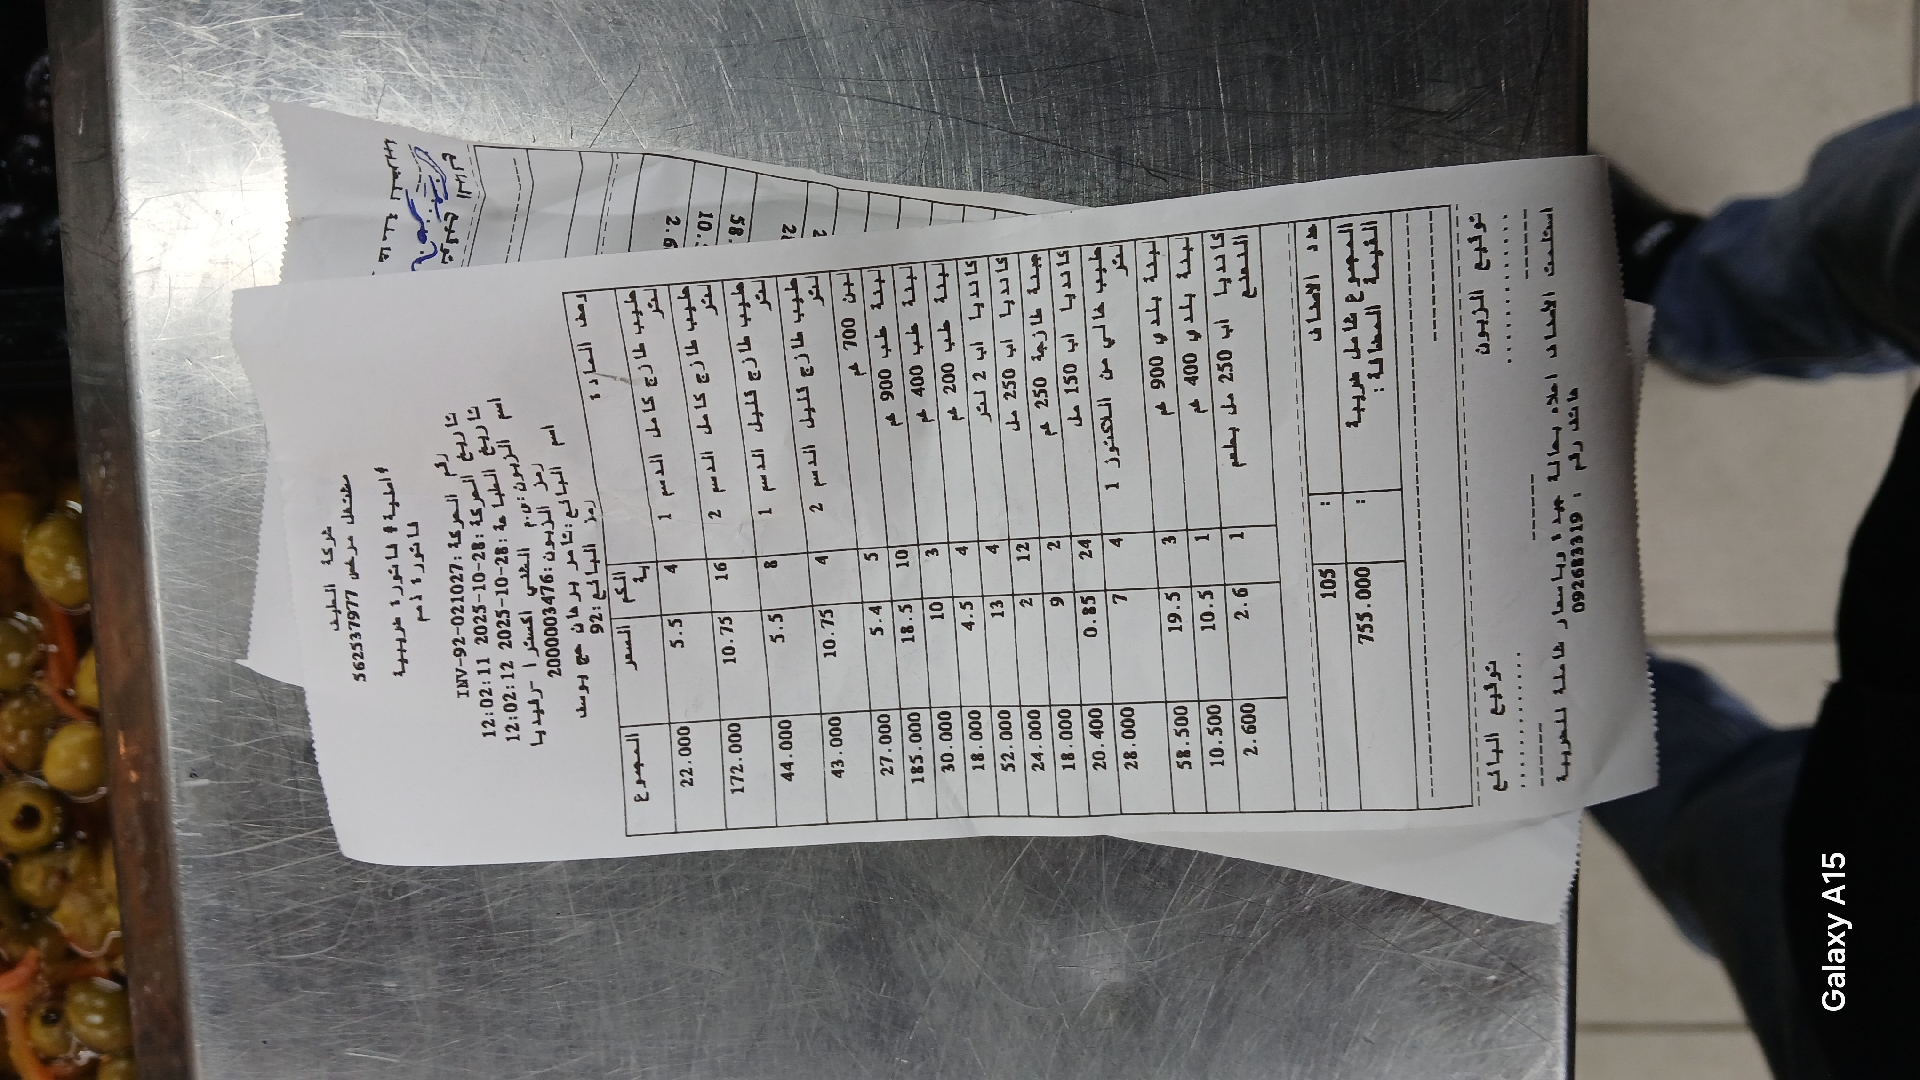 شركة الطيف
مشتغل مرخص 562537977
# اصلية # فاتورة ضريبية
فاتورة ذمم
رقم الحركة: INV-92-021027
تاريخ الحركة: 28-10-2025 12:02:11
تاريخ الطباعة: 28-10-2025 12:02:12
اسم الزبون: ش.م. الغني اكسترا - رفيديا
رمز الزبون: 2000003476
اسم البائع: تامر برهان حج يوسف
رمز البائع: 92
وصف المادة الكمية السعر المجموع
حليب طازج كامل الدسم 1 لتر 4 5.5 22.000
حليب طازج كامل الدسم 2 لتر 16 10.75 172.000
حليب طازج قليل الدسم 1 لتر 8 5.5 44.000
حليب طازج قليل الدسم 2 لتر 4 10.75 43.000
لبن 700 غم 5 5.4 27.000
لبنة طب 900 غم 10 18.5 185.000
لبنة طب 400 غم 3 10 30.000
لبنة طب 200 غم 4 4.5 18.000
كانديا اب 2 لتر 4 13 52.000
كانديا اب 250 مل 12 2 24.000
جبنة طازجة 250 غم 2 9 18.000
كانديا اب 150 مل 24 0.85 20.400
حليب خالي من اللاكتوز 1 لتر 4 7 28.000
لبنة بلدي 900 غم 3 19.5 58.500
لبنة بلدي 400 غم 1 10.5 10.500
كانديا اب 250 مل بطعم 1 2.6 2.600
عدد الاصناف : 105
المجموع شامل ضريبة القيمة المضافة : : 755.000
توقيع الزبون توقيع البائع
استلمت الاصناف اعلاه بحالة جيدة وباسعار شاملة للضريبة
هاتف رقم : 092683319
توقيع البائع
2.6
10.
58.
Galaxy A15